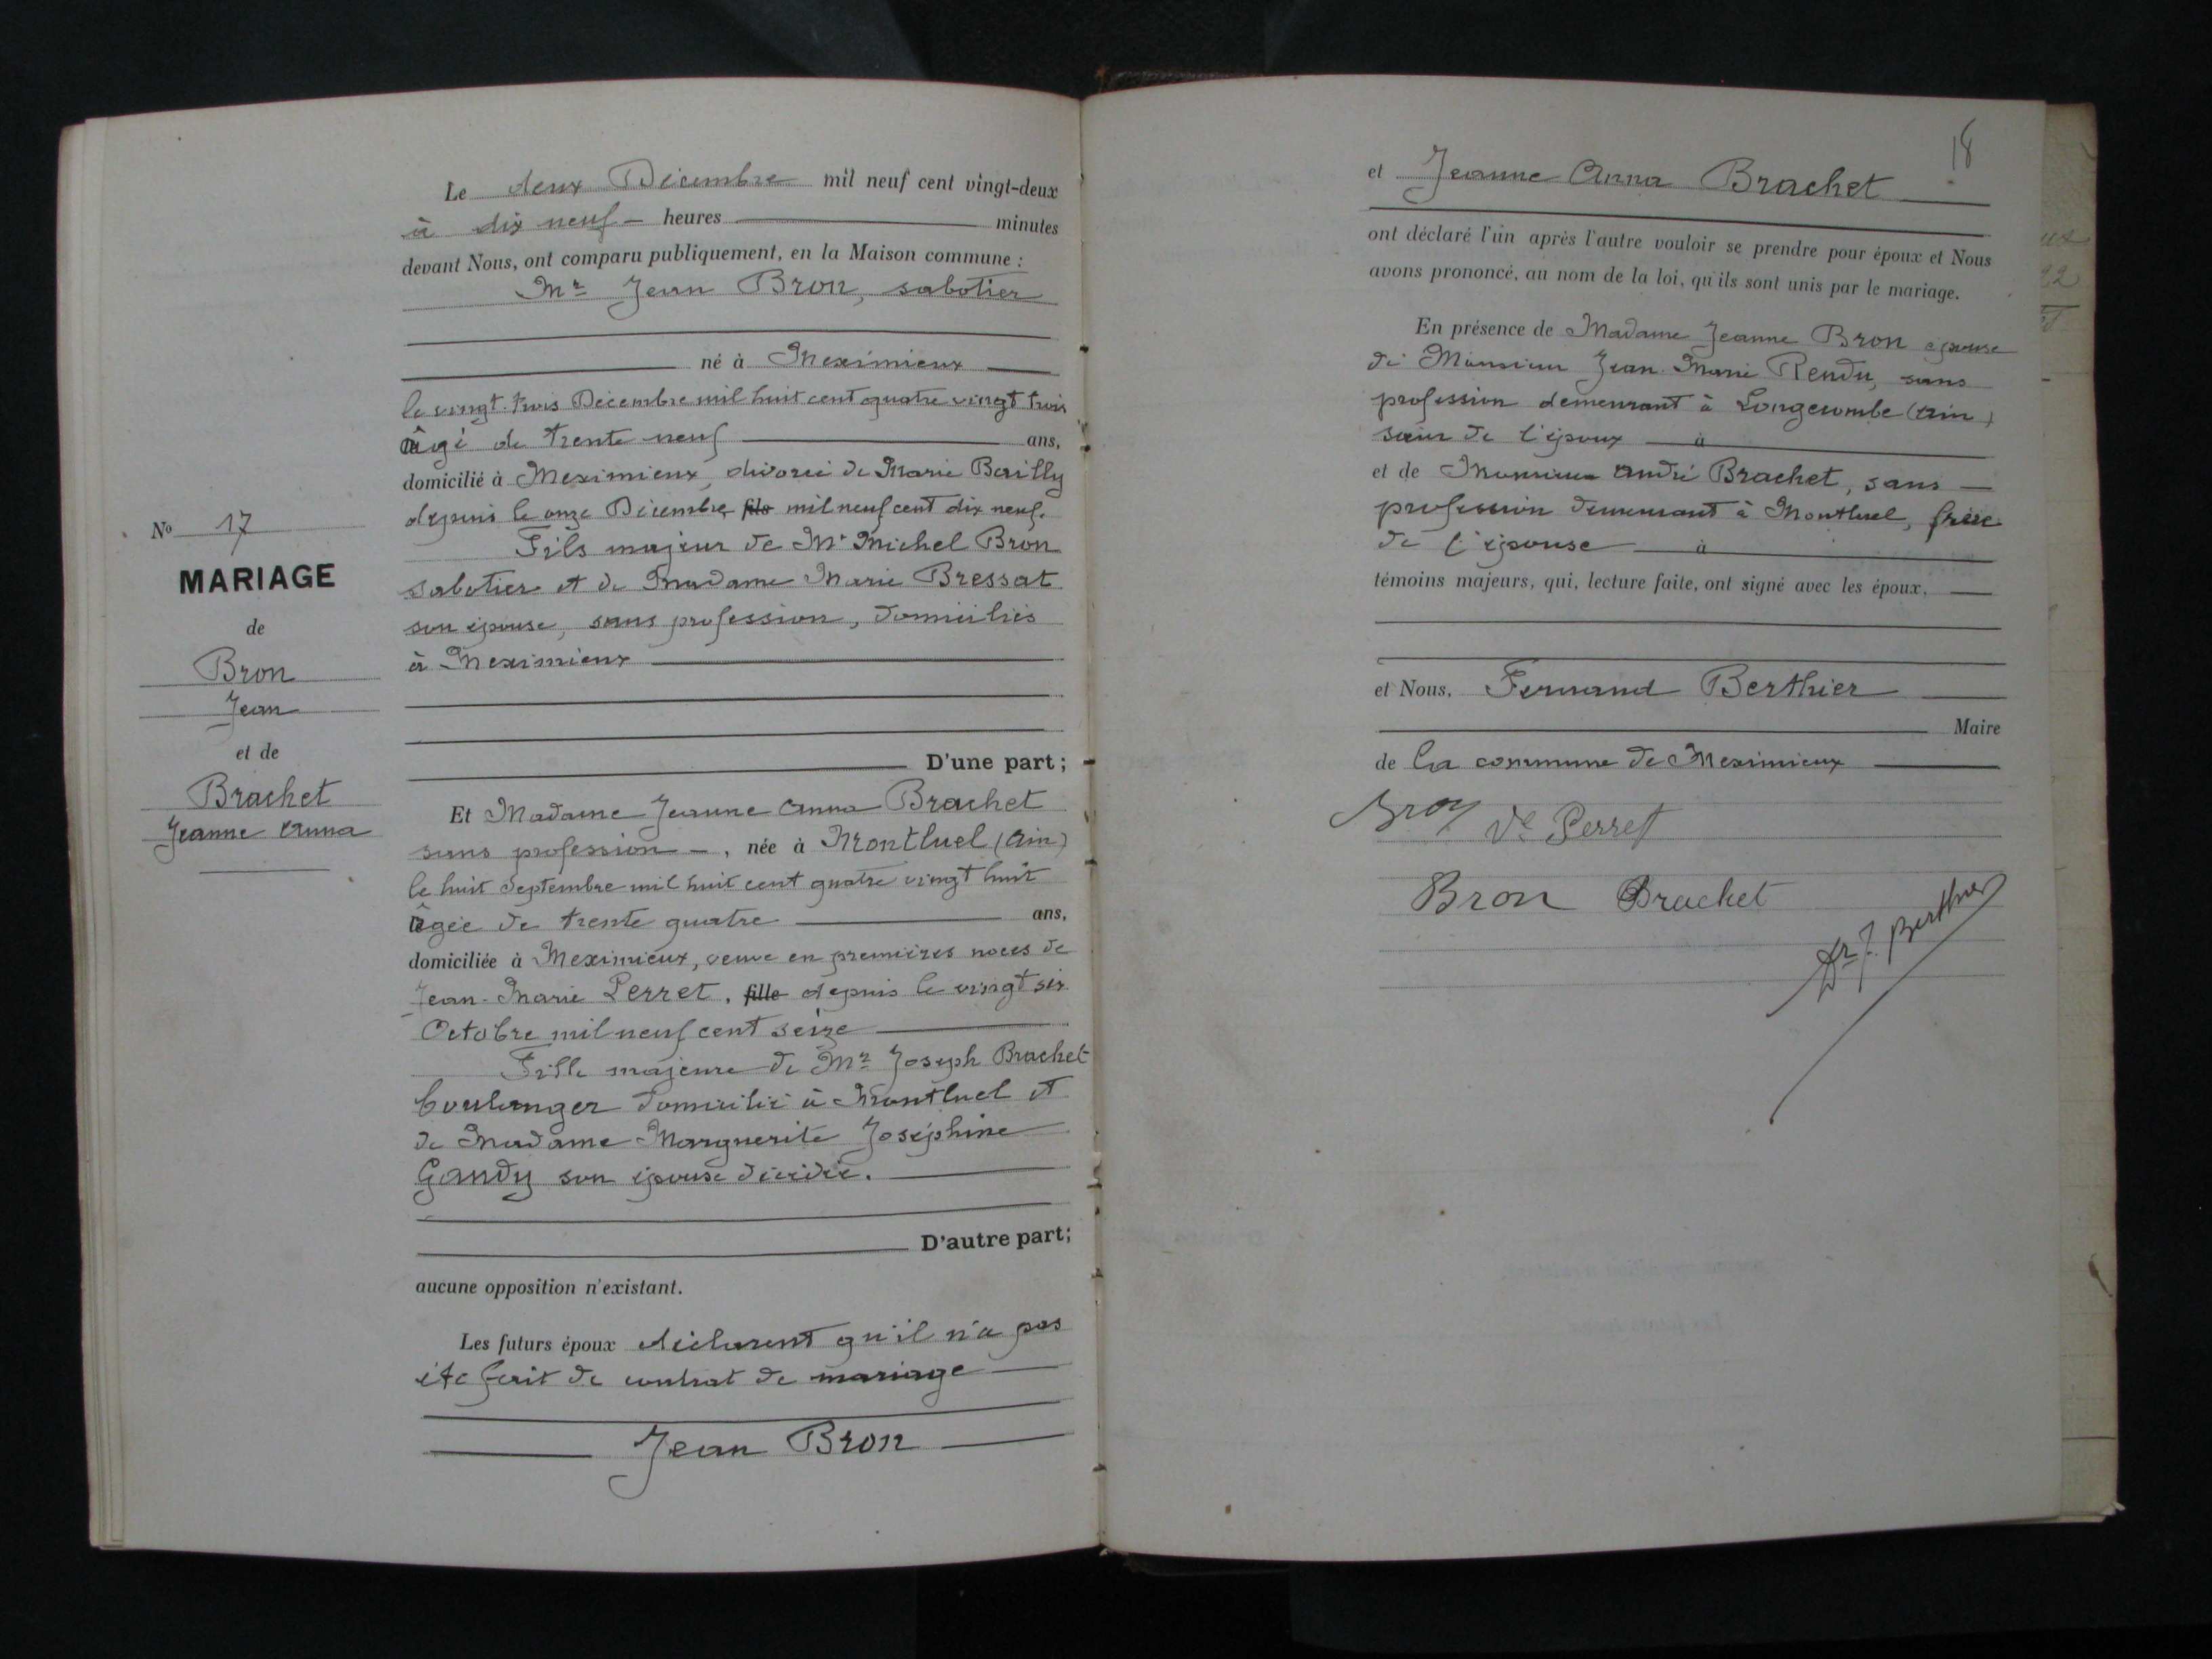 Le deux Décembre mil neuf cent vingt-deux
à dix neuf heures minutes
devant Nous, ont comparu publiquement, en la Maison commune :
Mr Jean Bron, sabotier
né à Meximieux
le vingt-trois Décembre mil huit cent quatre vingt trois
âgé de trente neuf ans,
domicilié à Meximieux, divorcé de Marie Bailly
depuis le onze Décembre fils mil neuf cent dix neuf.
Fils majeur de Mr Michel Bron
sabotier et de Madame Marie Bressat
son épouse, sans profession, domiciliés
à Meximieux
D'une part ;
No 17
MARIAGE
de
Bron
Jean
et de
Brachet
Jeanne Anna
Et Madame Jeanne Anna Brachet
sans profession , née à Montluel (Ain)
le huit Septembre mil huit cent quatre vingt huit
âgée de trente quatre ans,
domiciliée à Meximieux, veuve en premières noces de
Jean-Marie Perret, fille depuis le vingt six
Octobre mil neuf cent seize
Fille majeure de Mr Joseph Brachet
boulanger domicilié à Montluel et
de Madame Marguerite Joséphine
Gandy son épouse décédée.
D'autre part;
aucune opposition n'existant.
Les futurs époux déclarent qu'il n'a pas
été fait de contrat de mariage
Jean Bron
18
et Jeanne Anna Brachet
ont déclaré l'un après l'autre vouloir se prendre pour époux et Nous
avons prononcé, au nom de la loi, qu'ils sont unis par le mariage.
En présence de Madame Jeanne Bron épouse
de Monsieur Jean Marie Rendu, sans
profession demeurant à Longecombe (Ain)
sœur de l'époux à
et de Monsieur André Brachet, sans
profession demeurant à Montluel, frère
de l'épouse à
témoins majeurs, qui, lecture faite, ont signé avec les époux,
et Nous, Fernand Berthier
Maire
de la commune de Meximieux
Bron Ve Perret
Bron Brachet
Dr F. Berthier